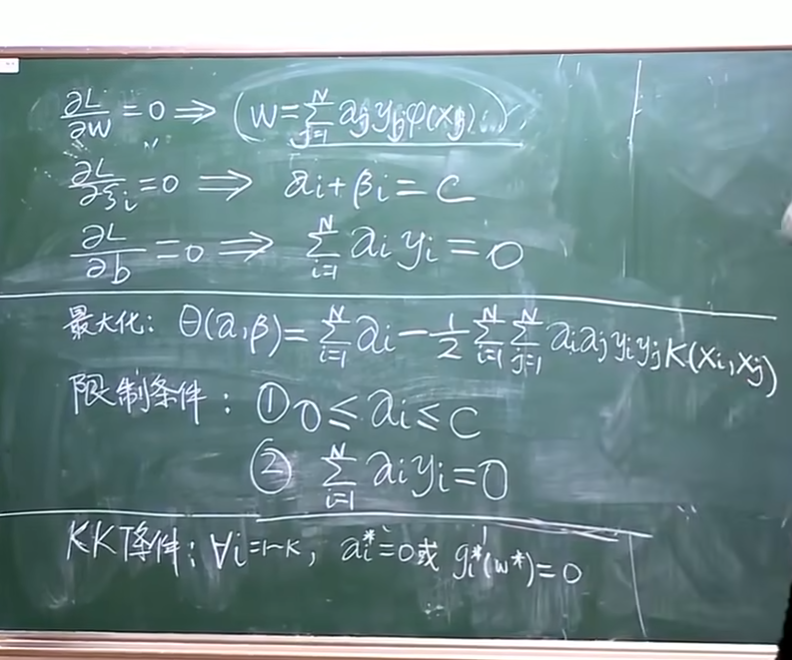 ∂L/∂w = 0 ⇒ (w = ∑_{j=1}^{N} a_j y_j φ(x_j))
∂L/∂ξ_i = 0 ⇒ a_i + β_i = C
∂L/∂b = 0 ⇒ ∑_{i=1}^{N} a_i y_i = 0
最大化: θ(a,β) = ∑_{i=1}^{N} a_i − 1/2 ∑_{i=1}^{N} ∑_{j=1}^{N} a_i a_j y_i y_j K(x_i, x_j)
限制条件: ① 0 ≤ a_i ≤ C
② ∑_{i=1}^{N} a_i y_i = 0
KKT条件: ∀i=1~K, a_i^* = 0 或 g_i^*(w^*) = 0